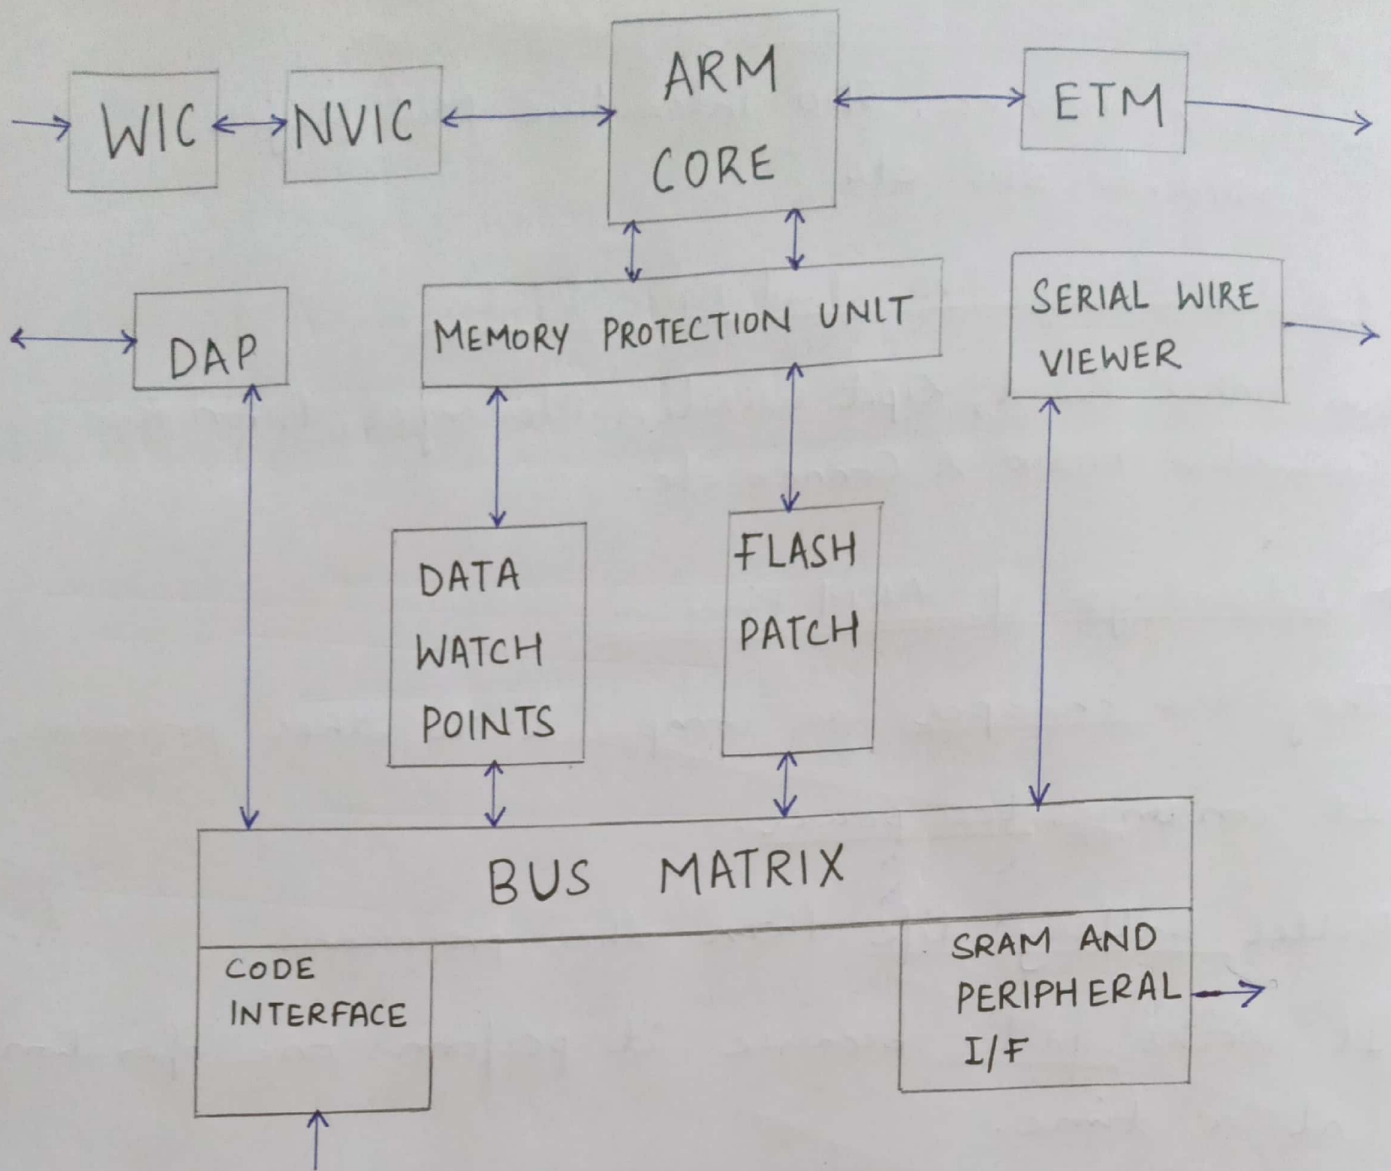 WIC
NVIC
ARM
CORE
ETM
DAP
MEMORY PROTECTION UNIT
SERIAL WIRE
VIEWER
DATA
WATCH
POINTS
FLASH
PATCH
BUS MATRIX
CODE
INTERFACE
SRAM AND
PERIPHERAL
I/F